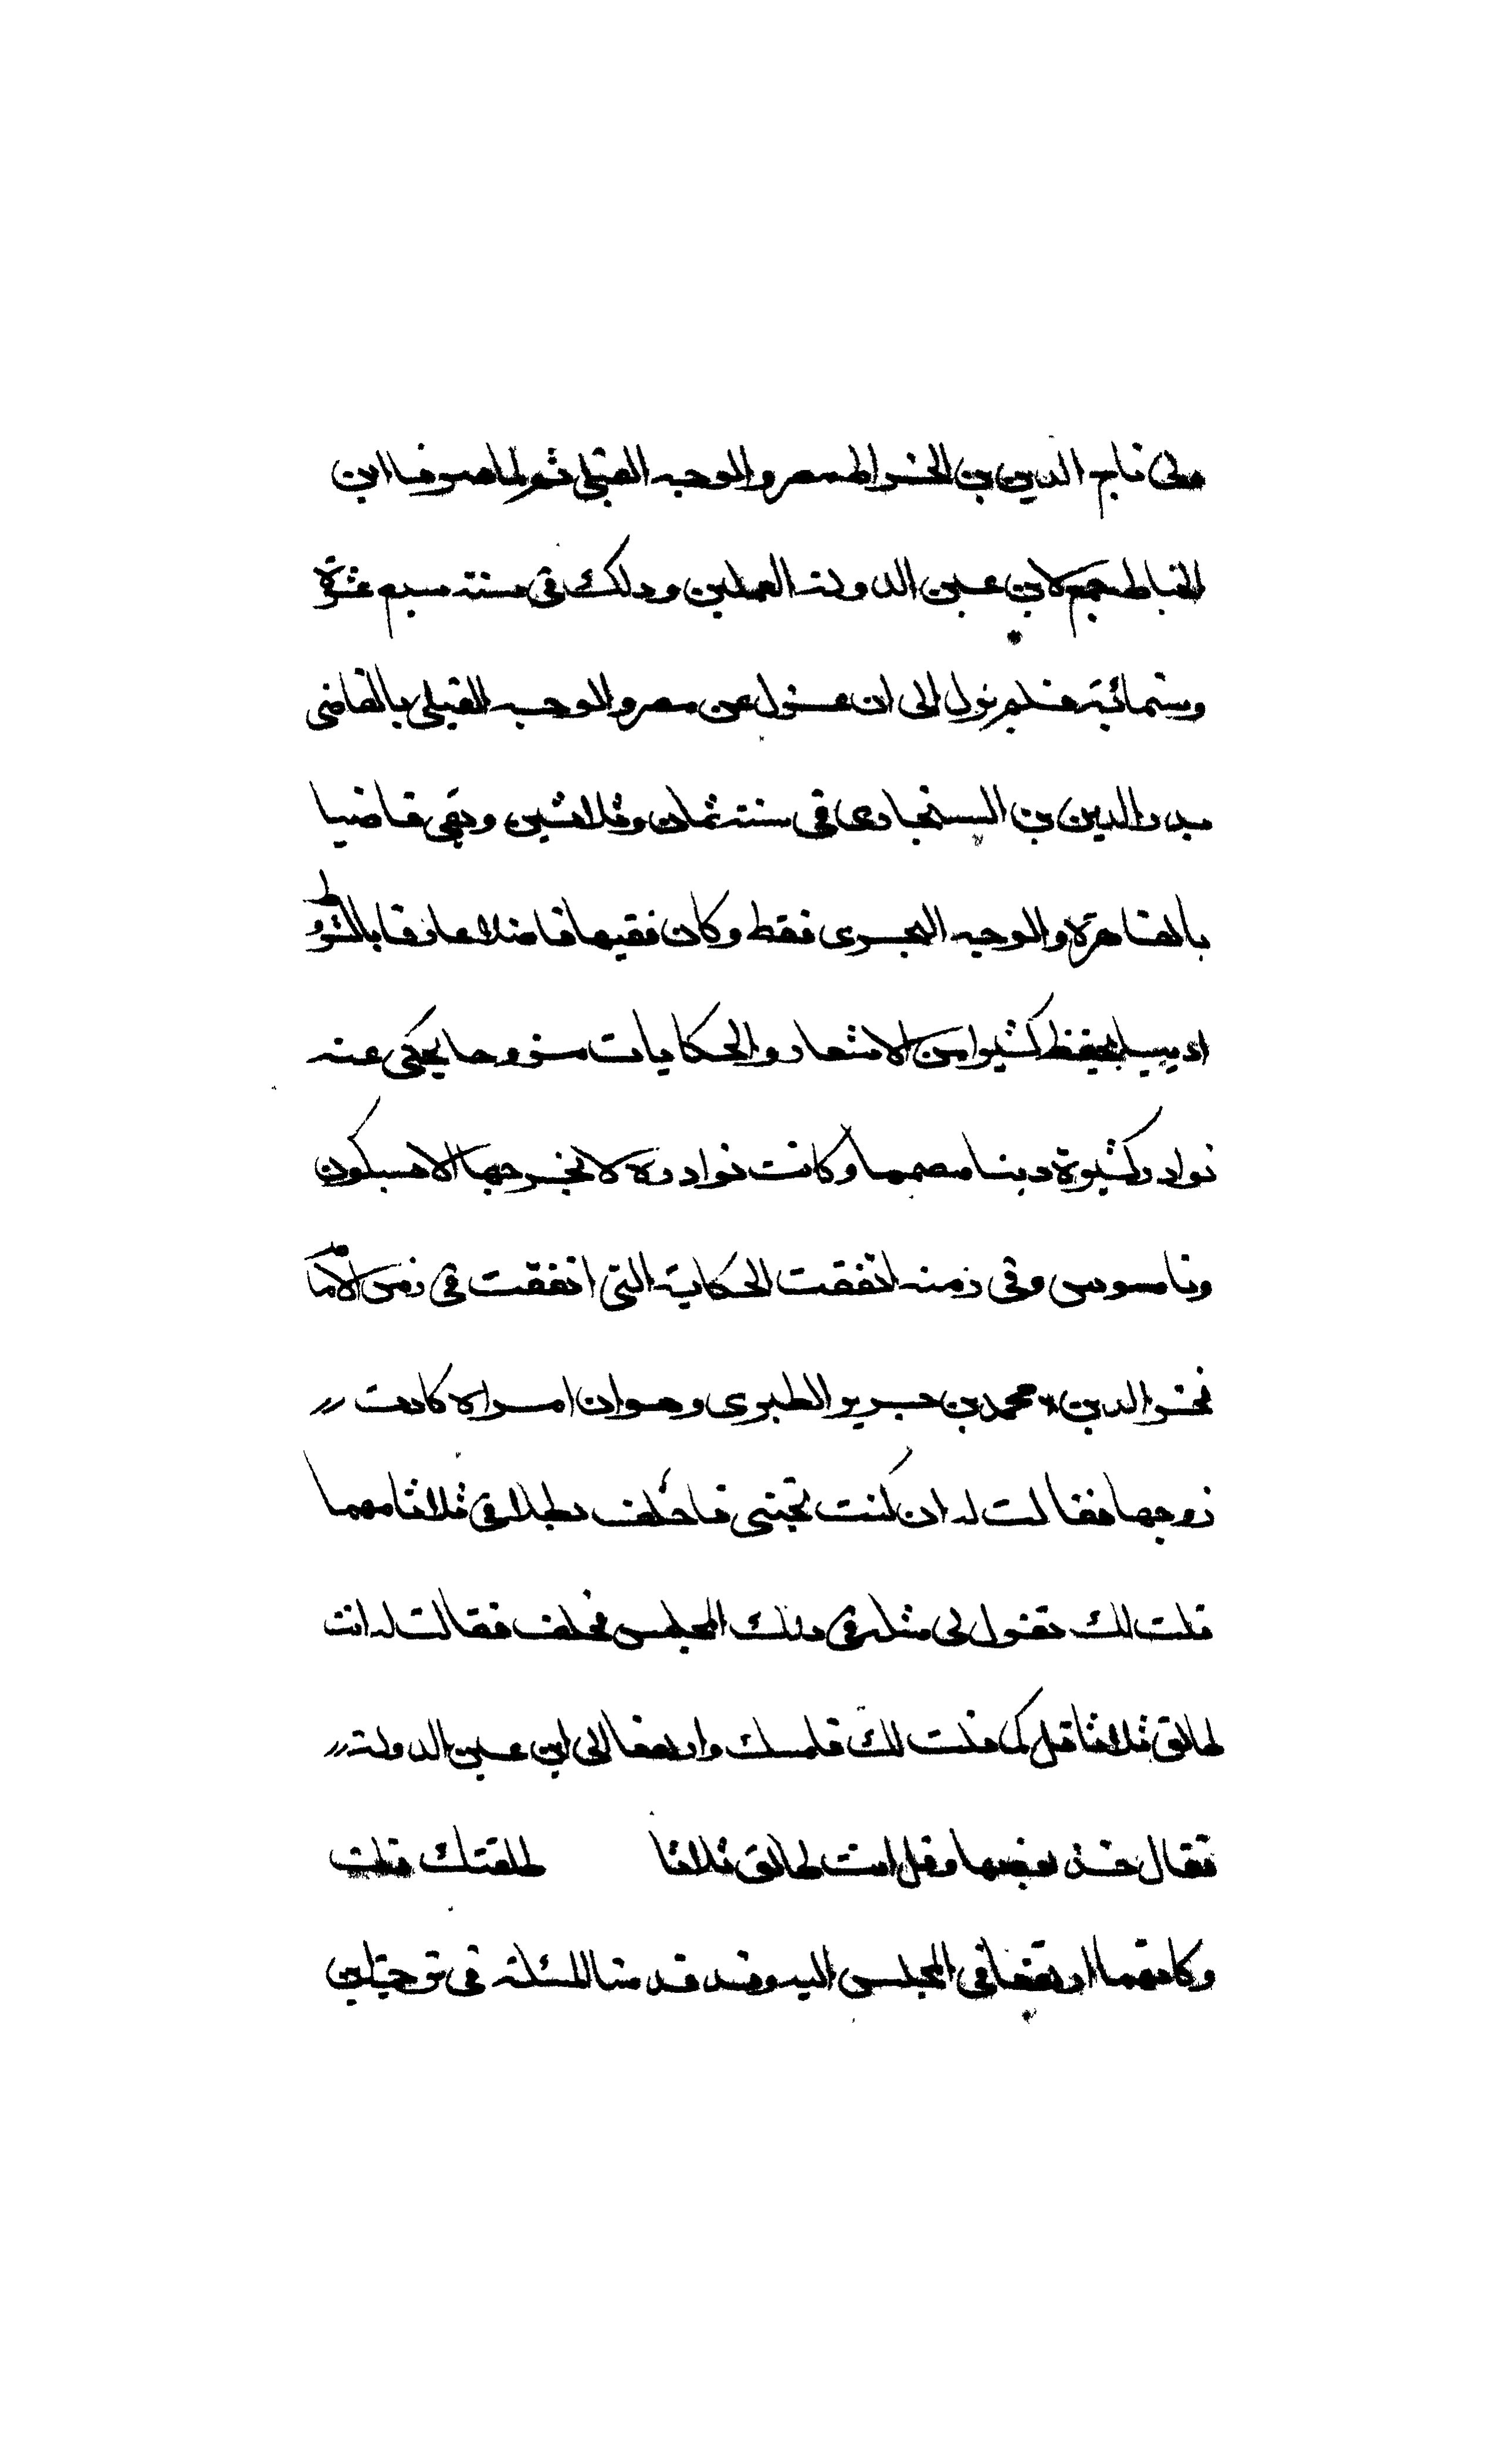 وولى تاج الدين بن الخراط مصر والوجه القبلى ثم لما صرف ابن
الخباط جمع لابن عين الدولة العملين وذلك فى سنة سبع عشرة
وستمائة فلم يزل الى ان عزل عن مصر والوجه القبلى بالقاضى
بدر الدين بن السنجارى فى سنة ثمان وثلاثين وبقى قاضيا
بالقاهرة والوجه البحرى فقط وكان فقيها فاضلا عارفا بالشروط
اديبا يحفظ كثيرا من الاشعار والحكايات مزوحا يحكى عنه
نوادر كثيرة دينا مصمما وكانت نوادره لا يخرجها الا بسكون
وناموس وفى زمنه اتفقت الحكاية التى اتفقت فى زمن الامام
فخر الدين محمد بن جرير الطبرى وهو ان امراة كادت
زوجها فقالت له ان كنت تحبنى فاحلف بطلاقى ثلاثا مهما
قلت لك تقول لى مثله فى ذلك المجلس فحلف فقالت له انت
طالق ثلاثا قل كما قلت لك فامسك وارتفعا الى ابن عين الدولة
فقال خذ بعقصتها وقل انت طالق ثلاثا طلقتك قلت
وكانهما ارتفعا فى المجلس اليه وقد قدمنا المسئلة فى ترجمة ابن